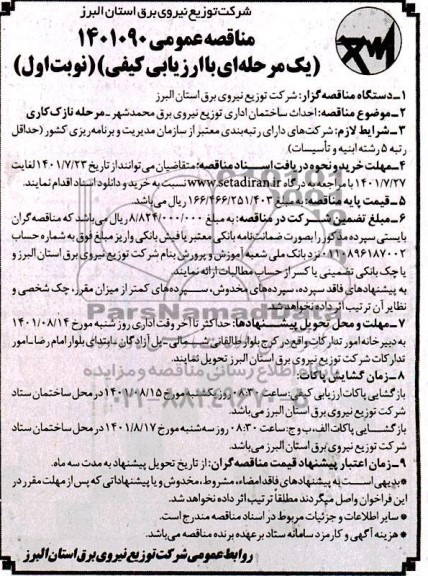 شرکت توزیع نیروی برق استان البرز
مناقصه عمومی ۱۴۰۱۰۹۰
(یک مرحله‌ای با ارزیابی کیفی) (نوبت اول)
۱-دستگاه مناقصه‌گزار: شرکت توزیع نیروی برق استان البرز
۲-موضوع مناقصه: احداث ساختمان اداری توزیع نیروی برق محمدشهر -مرحله نازک کاری
۳-شرایط لازم: شرکت‌های دارای رتبه‌بندی معتبر از سازمان مدیریت و برنامه‌ریزی کشور (حداقل
رتبه ۵ رشته ابنیه و تأسیسات)
۴-مهلت خرید و نحوه دریافت اسناد مناقصه: متقاضیان می‌توانند از تاریخ ۱۴۰۱/۷/۲۳ لغایت
۱۴۰۱/۷/۲۷ با مراجعه به درگاه www.setadiran.ir نسبت به خرید و دانلود اسناد اقدام نمایند.
۵-قیمت پایه مناقصه: به مبلغ ۱۶۶/۴۶۶/۲۵۱/۴۰۳ ریال می‌باشد.
۶-مبلغ تضمین شرکت در مناقصه: به مبلغ ۸/۸۲۴/۰۰۰/۰۰۰ ریال می‌باشد که مناقصه گران
بایستی سپرده مذکور را بصورت ضمانت‌نامه بانکی معتبر یا فیش بانکی واریز مبلغ فوق به شماره حساب
۰۱۱۰۸۹۶۱۸۷۰۰۲ نزد بانک ملی شعبه آموزش و پرورش بنام شرکت توزیع نیروی برق استان البرز و
یا چک بانکی تضمینی یا کسر از حساب مطالبات ارائه نمایند.
به پیشنهادهای فاقد سپرده، سپرده‌های مخدوش، سپرده‌های کمتر از میزان مقرر، چک شخصی و
نظایر آن ترتیب اثر داده نخواهد شد.
۷-مهلت و محل تحویل پیشنهادها: حداکثر تا آخر وقت اداری روز شنبه مورخ ۱۴۰۱/۰۸/۱۴
به دبیرخانه امور تدارکات واقع در کرج بلوار طالقانی شمالی-پل آزادگان-ابتدای بلوار امام رضا-امور
تدارکات شرکت توزیع نیروی برق استان البرز تحویل نمایند.
۸-زمان گشایش پاکات:
بازگشایی پاکات ارزیابی کیفی: ساعت ۰۸:۳۰ روز یکشنبه مورخ ۱۴۰۱/۰۸/۱۵ در محل ساختمان ستاد
شرکت توزیع نیروی برق استان البرز می‌باشد.
بازگشایی پاکات الف، ب و ج: ساعت ۰۸:۳۰ روز سه‌شنبه مورخ ۱۴۰۱/۸/۱۷ در محل ساختمان ستاد
شرکت توزیع نیروی برق استان البرز می‌باشد.
۹-زمان اعتبار پیشنهاد قیمت مناقصه‌گران: از تاریخ تحویل پیشنهاد به مدت سه ماه.
*بدیهی است به پیشنهادهای فاقد امضاء، مشروط، مخدوش و یا پیشنهاداتی که پس از مهلت مقرر در
این فراخوان واصل می‌گردند مطلقا ترتیب اثر داده نخواهد شد.
* سایر اطلاعات و جزئیات مربوط در اسناد مناقصه مندرج است.
* هزینه آگهی و کارمزد سامانه ستاد بر عهده برنده مناقصه می‌باشد.
روابط عمومی شرکت توزیع نیروی برق استان البرز
ParsNamadData
پایگاه اطلاع رسانی مناقصه و مزایده